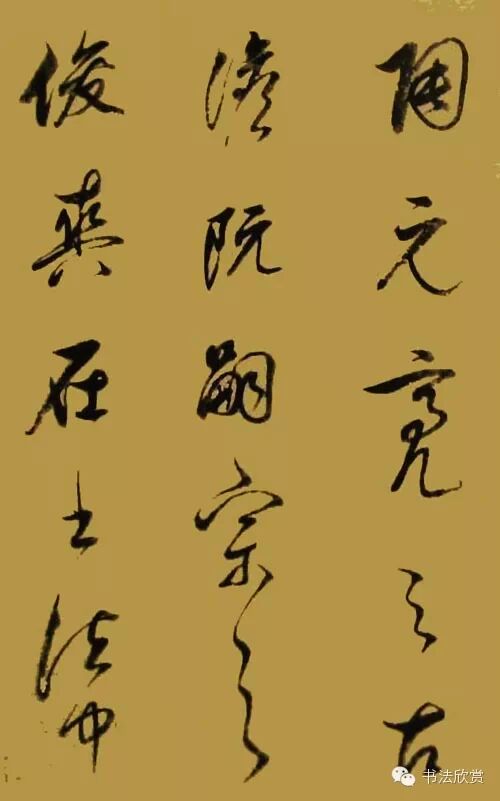 陶元亮之古
澹阮嗣宗之
俊爽在書法中
书法欣赏